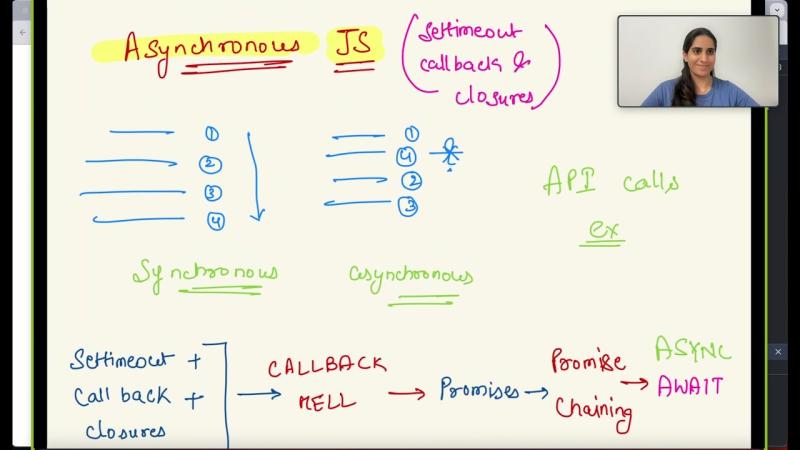 Asynchronous JS
(Settimeout
callback &
closures)
① ①
② ④
③ ②
④ ③
API calls
ex
Synchronous asynchronous
Settimeout +
Call back +
closures
→ CALLBACK
HELL
→ Promises →
Promise
Chaining
→ ASYNC
AWAIT